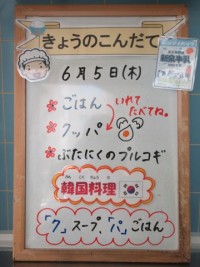 きょうのこんだて
6月5日(木)
ごはん
いれて
たべてね。
クッパ
ぶたにくのプルコギ
韓国料理
「ク」スープ、「パ」ごはん